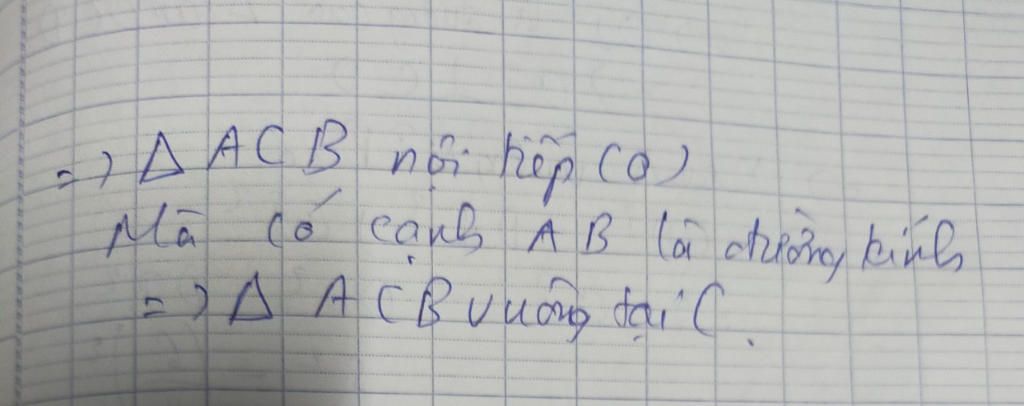 => Δ ACB nội tiếp (O)
Mà có cạnh AB là đường kính
=> Δ ACB vuông tại C.